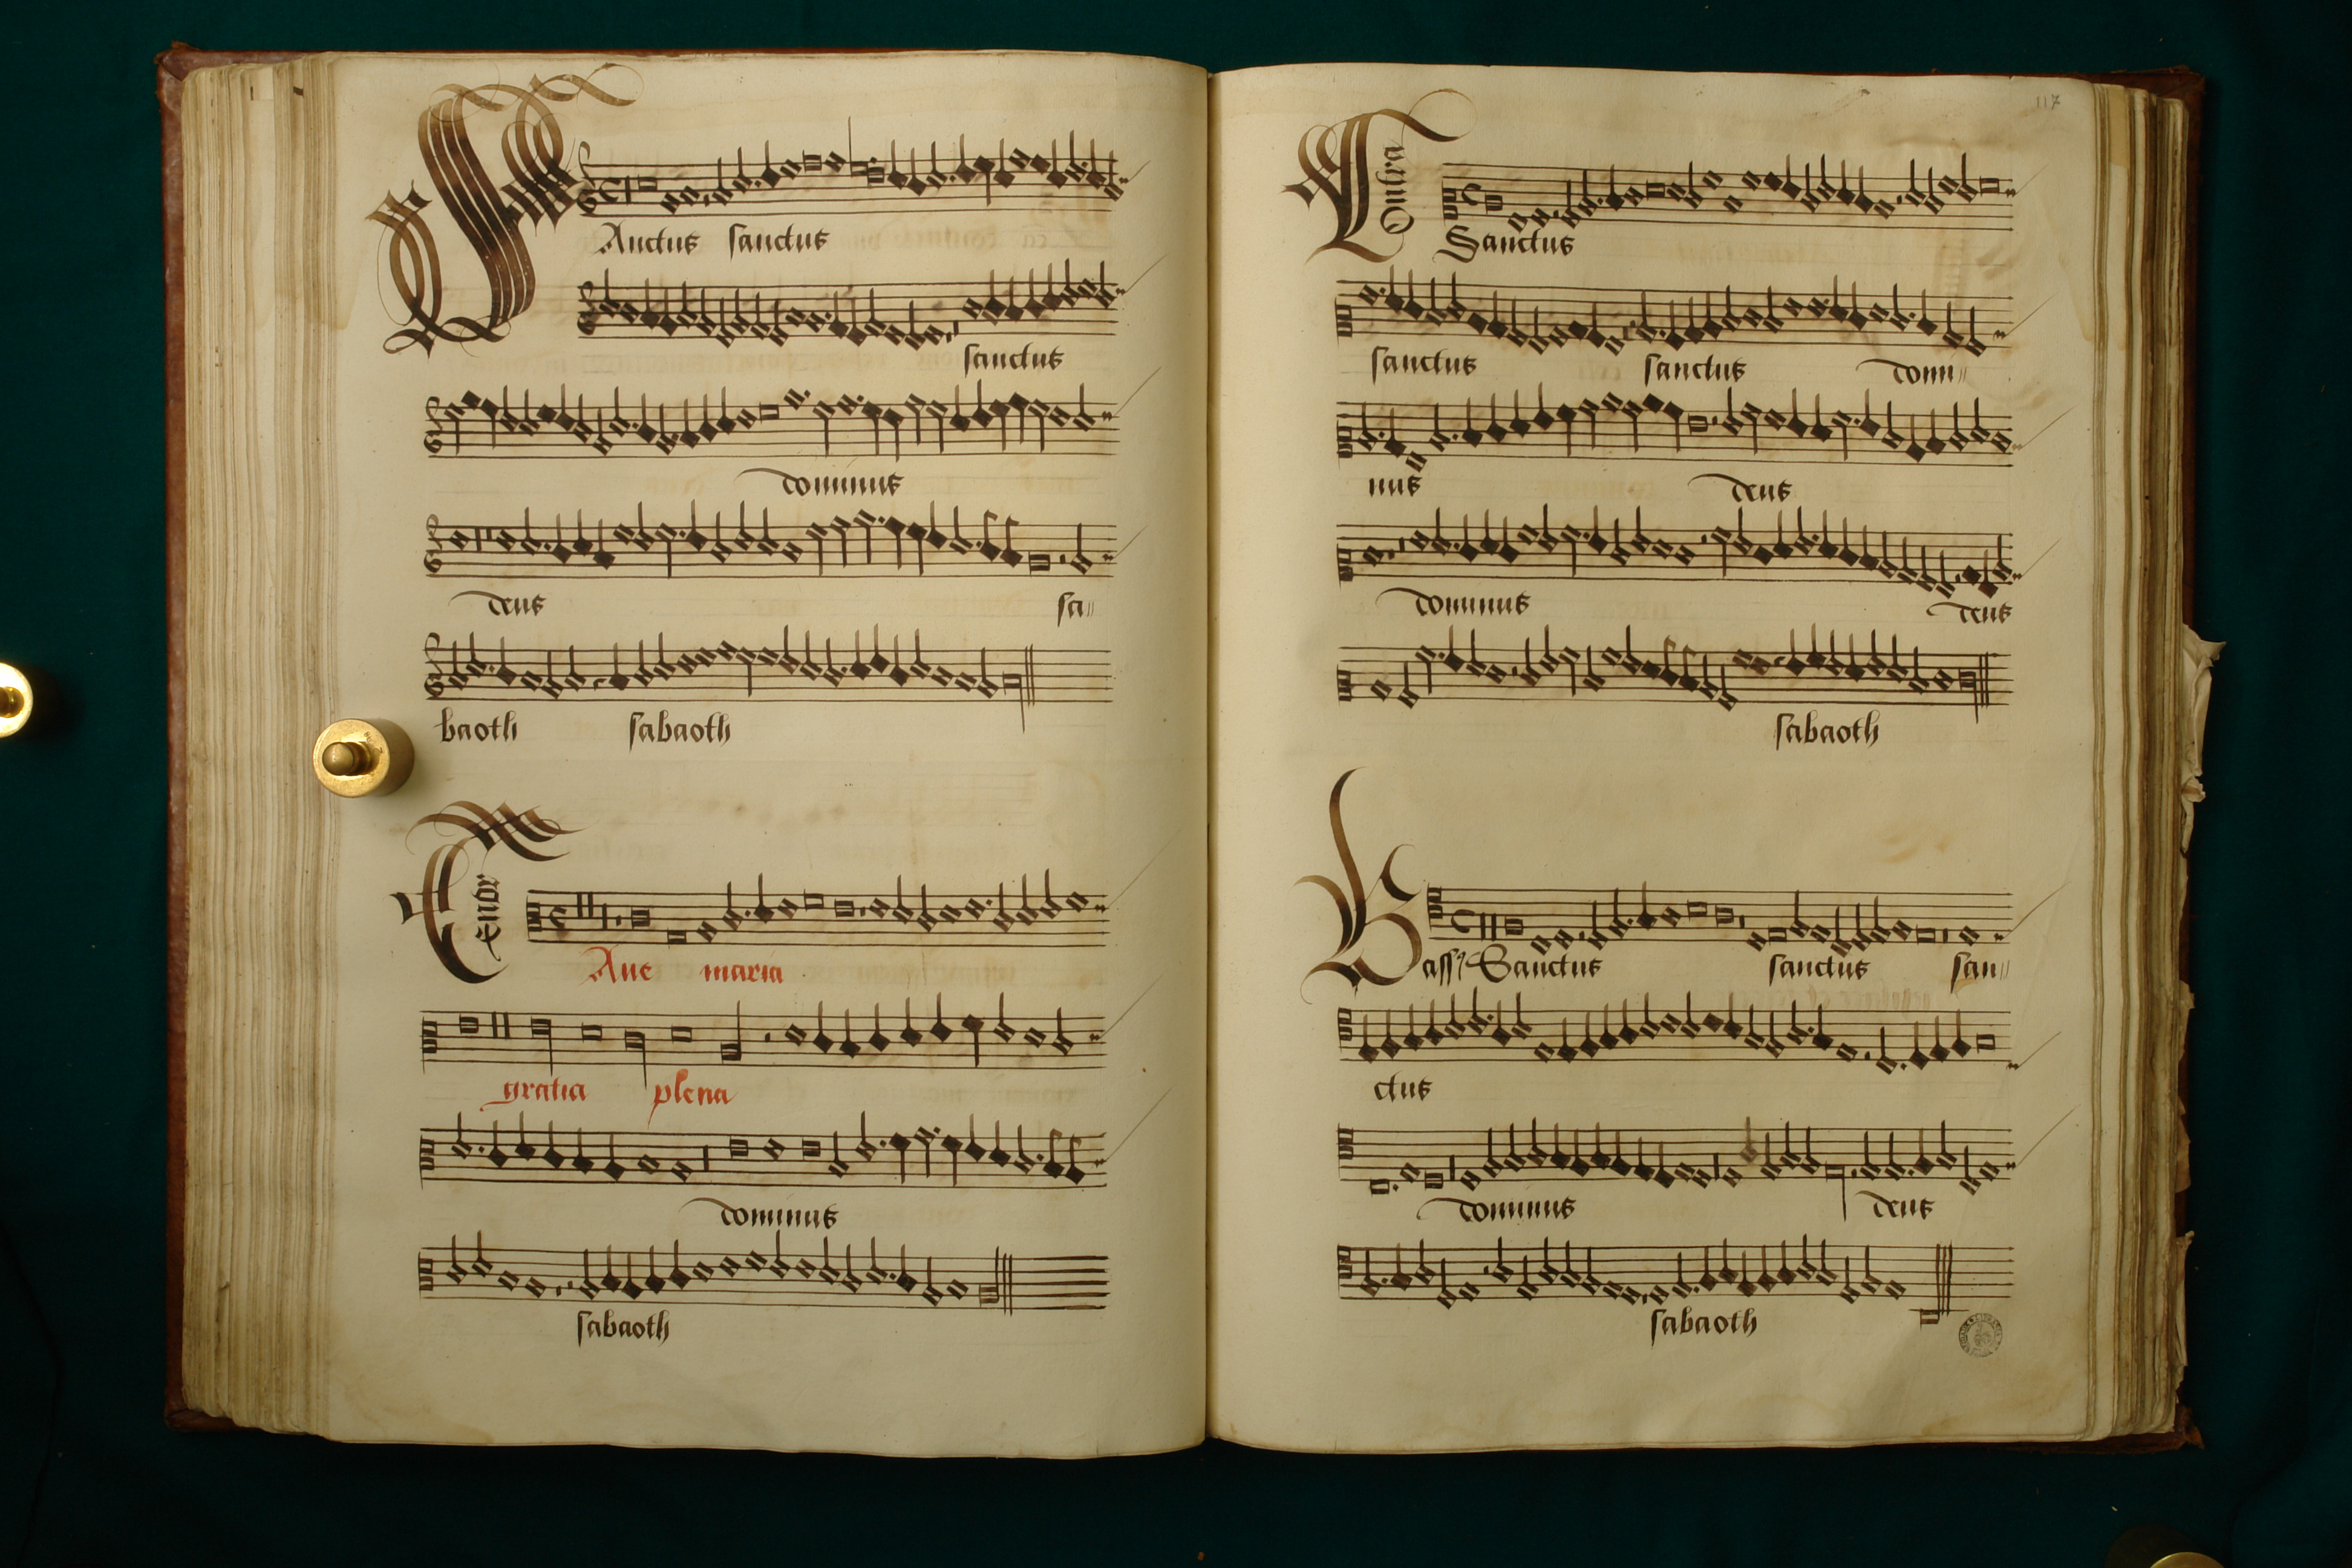 SAnctus sanctus
sanctus
dominus
deus sa
baoth sabaoth
Tenor
Aue maria
gratia plena
dominus
sabaoth
117
Contra
Sanctus
sanctus sanctus domi
nus deus
dominus deus
sabaoth
Bass9 Sanctus sanctus san
ctus
dominus deus
sabaoth